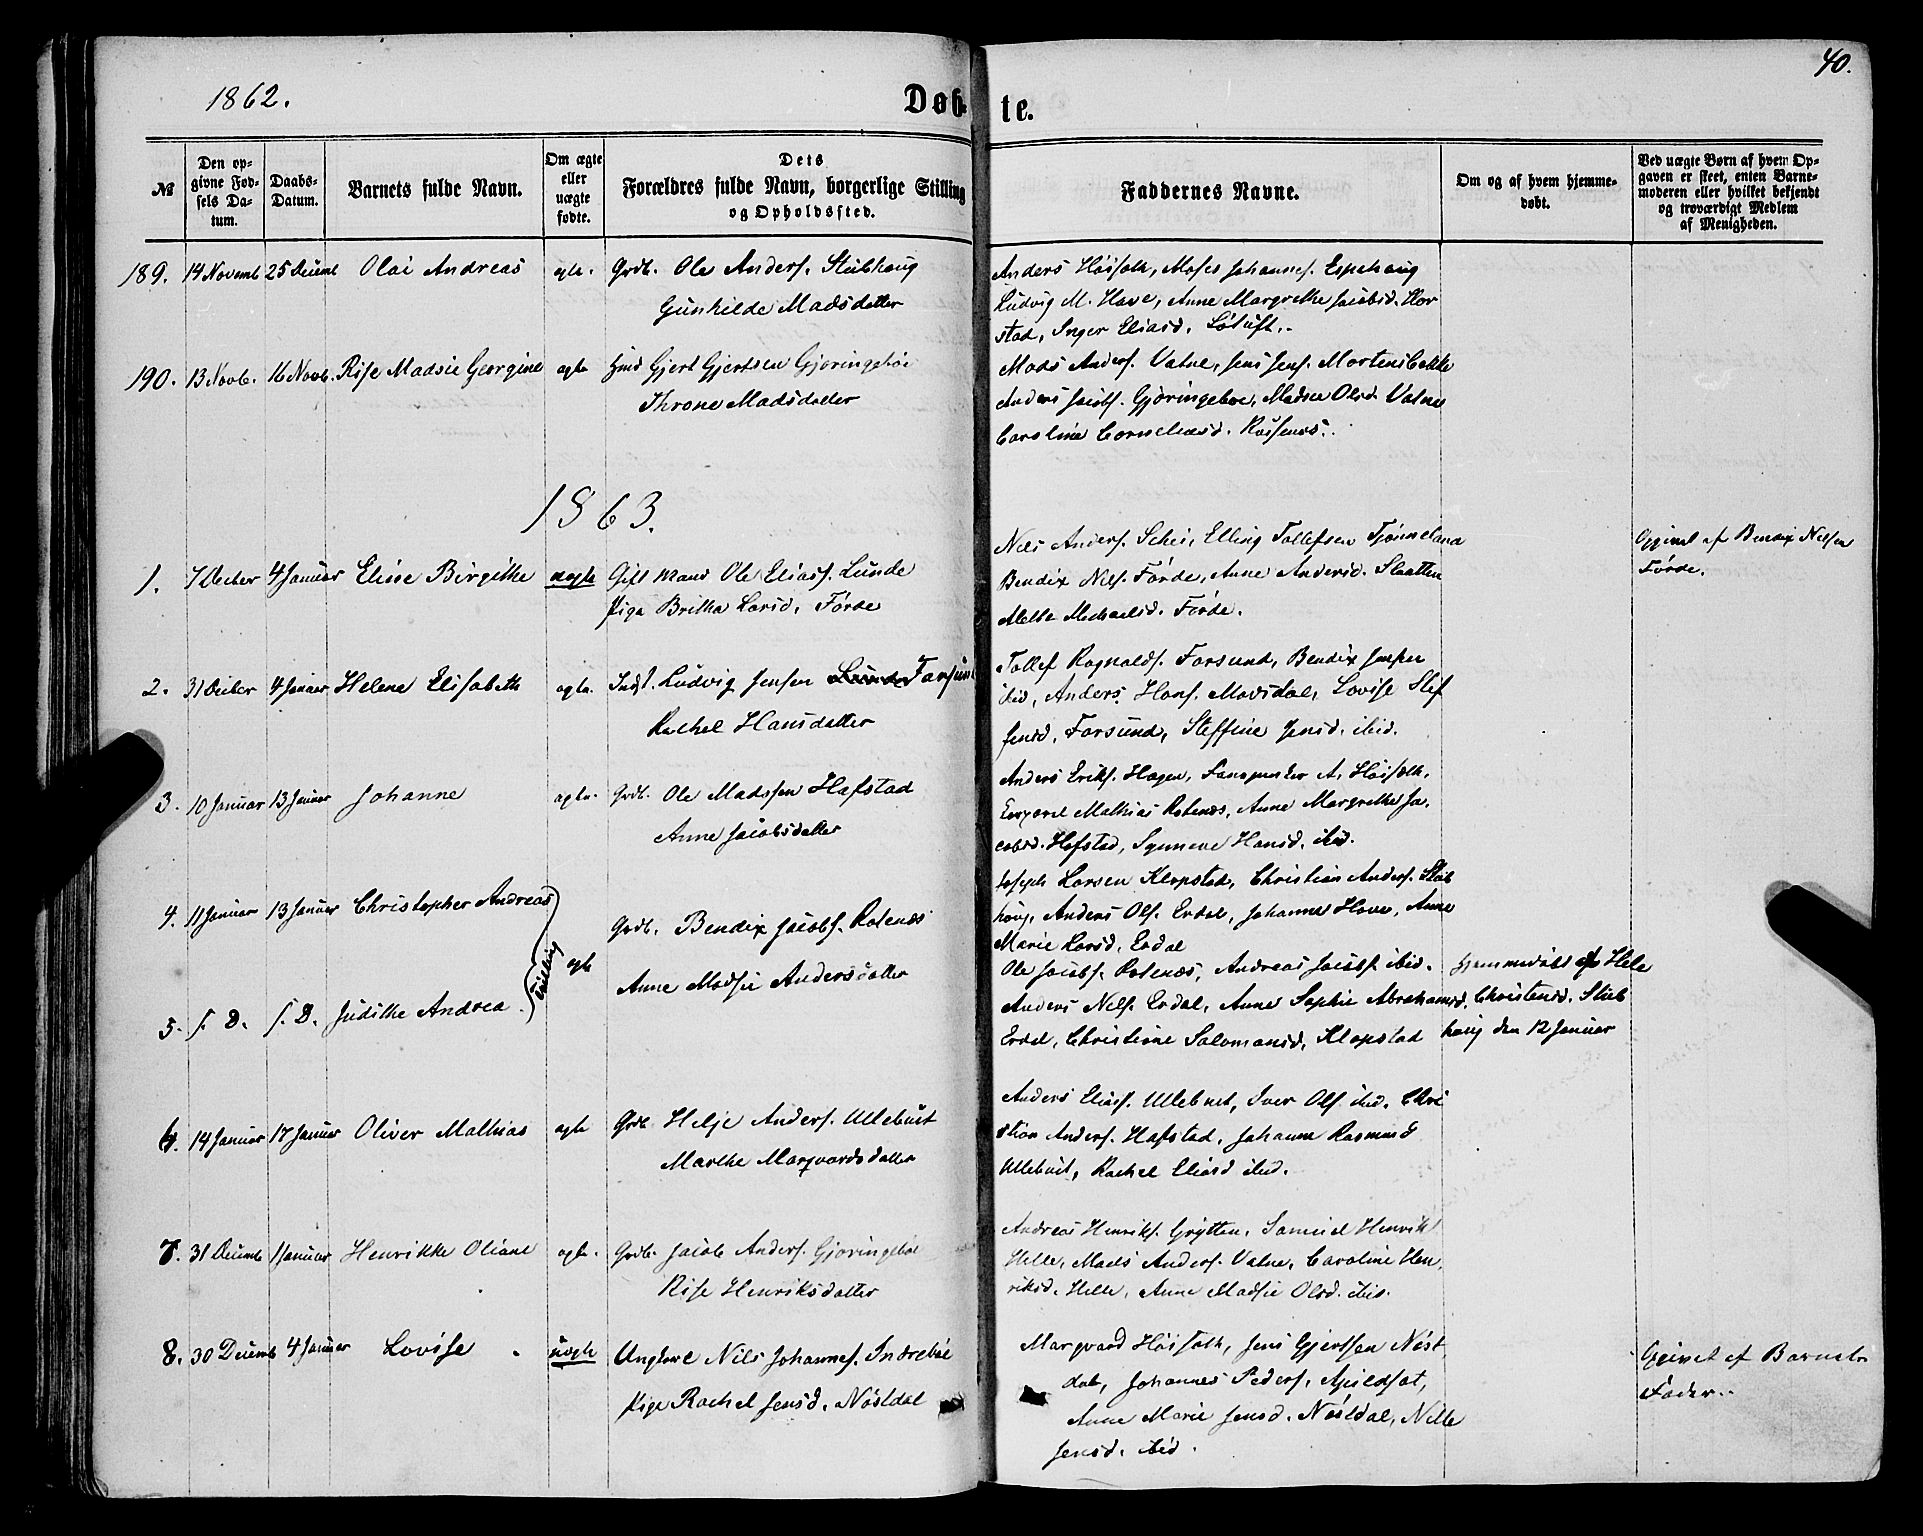 1862.
Døb-
te.
40.
№
Den op-
givne Fød-
sels Da-
tum.
Daabs-
Datum.
Barnets fulde Navn.
Om ægte
eller
uægte
fødte.
Dets
Forældres fulde Navn, borgerlige Stilling
og Opholdssted.
Faddernes Navne.
Om og af hvem hjemme-
døbt.
Ved uægte Børn af hvem Op-
gaven er skeet, enten Barne-
moderen eller hvilket bekjendt
og troværdigt Medlem
af Menigheden.
189. 14 Novemb 25 Decemb Olai Andreas ægte. Grdb. Ole Anders. Stubhoug
Gunhilde Madsdatter
Anders Høisæth, Moses Johannes. Espehoug
Ludvig M. Have, Anne Margrethe Jacobsd. Hor
stad, Inger Eliasd.
190. 13 Novb. 16 Novb. Rise Madsie Georgine ægte Hmd Gjert Gjertsen Gjøringebøe
Throne Madsdatter
Mads Anders. Vatne, Jens Jens. Mortensbakke
Anders Jacobs. Gjøringeboe, Madsee Olsd. Vatne
Caroline Corneliusd.
1863.
1. 7 Decber 4 Januar Eline Birgithe uægte Gift Mand Ole Eliass. Lunde
Pige Britha Larsd. Førde
Nils Anders. Schei, Elling Tollefsen Tjønneland
Bendix Nils. Førde, Anne Andersd. Slaatten
Mechaelsd. Førde.
Opgivet af Bendix Nilsen
Førde.
2. 31 Decber 4 Januar Helene Elisabeth ægte. Indst. Ludvig Jensen Lunde Farsund
Rachel Hansdatter
Tollef Ragnalds. Farsund, Bendix Jesper
ibid, Anders Hans. Movsdal, Lovise Stef
fensd. Farsund, Steffine Jensd. ibid.
3. 10 Januar 13 Januar Johanne ægte. Grdb. Ole Madssen Hafstad
Anne Jacobsdatter
Anders Eriks. Hagen, A. Høisæth,
Mathias Rotenes, Anne Margrethe Ja,
cobsd. Hafstad, Synneve Hansd. ibid.
4. 11 Januar 13 Januar Christopher Andreas
Tvilling
ægte
Grdb. Bendix Jacobs. Rotenes
Anne Madsie Andersdatter
Joseph Larsen Klopstad, Christian Anders. Stub
houg, Anders Ols. Erdal, Johanne Hove, Anne
Marie Larsd. Erdal
5. s. D. s. D. Judithe Andrea
Ole Jacobs. Rotenes, Andreas Jacobs. ibid.
Anders Nils. Erdal, Anne Sophie Abrahamsd.
Erdal, Christine Salomonsd. Klopstad
Hjemmedøbt af Hele
Christensd. Stub
houg den 12 Januar
6. 14 Januar 17 Januar Oliver Mathias ægte Grdb. Helje Anders. Ullebust
Marthe Marqvardsdatter
Anders Eliass. Ullebust, Iver Ols. ibid. Chri
stian Anders. Hafstad, Johanne Rasmusd
Ullebust, Rachel Eliasd ibid.
7. 31 Decemb 1 Januar Henrikke Oliane ægte. Grdb. Jacob Anders. Gjøringeboe
Rise Henriksdatter
Andreas Henriks. Grytten, Samuel Henriks
Helle, Mads Anders. Vatne, Caroline Hen
riksd. Helle, Anne Madsie Olsd. ibid.
8. 30 Decemb 4 Januar Lovise uægte Ungkarl Nils Johannes. Indrebøe
Pige Rachel Jensd. Nøstdal
Marqvard Høisæth, Jens Gjertsen Nøst
dal, Johannes Peders. Apildsat,
Anne Marie Jensd. Nøstdal, Nille
Jensd. ibid.
Opgivet af Barnets
Fader.